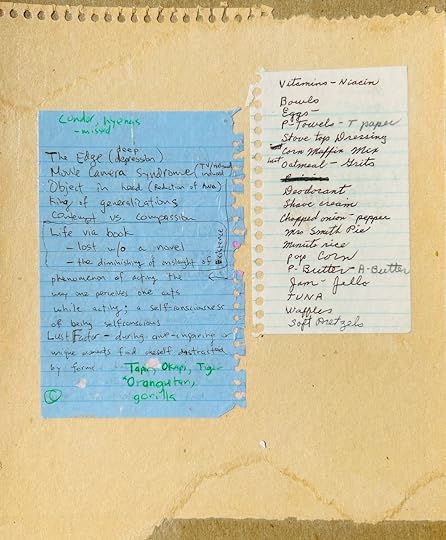 Condor, hyenas
- missed
The Edge (deep depression)
Movie Camera Syndrome (TV/natural induced
Object in head (Reduction of Awe)
King of generalizations
Contempt vs. compassion
Life via book
- lost w/o a novel
- the diminishing of onslaught of
phenomenon of acting the
way one perceives one acts
while acting; a self-consciousness
of being selfconscious
Existence
Lust Factor - during awe-inspiring or
unique moments find oneself
by form
Tapir, Okapi, Tiger
Orangutan,
gorilla
Vitamins - Niacin
Bowls
Eggs -
P-Towels - T paper
Stove top Dressing
Corn Muffin Mix
Oatmeal - Grits
Deodorant
Shave cream
Chopped onion - pepper
Mrs Smith Pie
Minute rice
pop Corn
P-Butter - A-Butter
Jam - Jello
TUNA
Waffles
Soft Pretzels